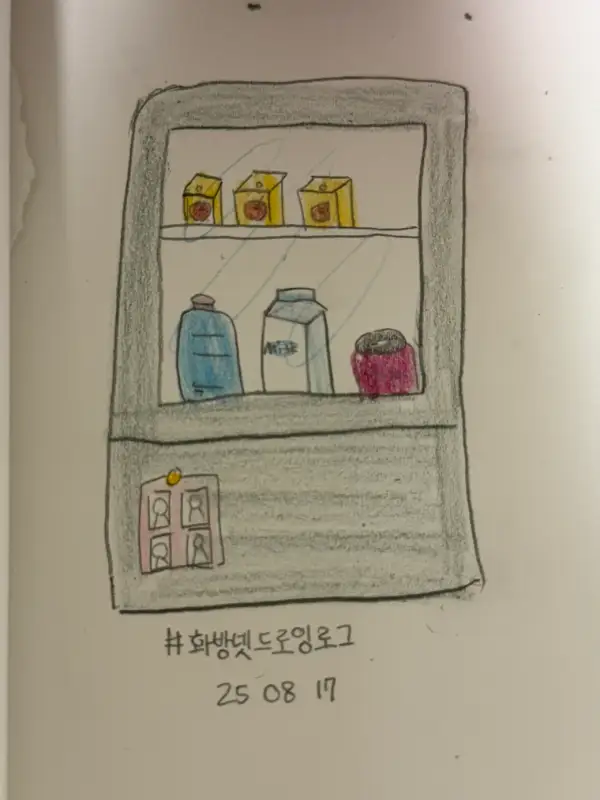 MILK
#화방넷드로잉로그
25 08 17